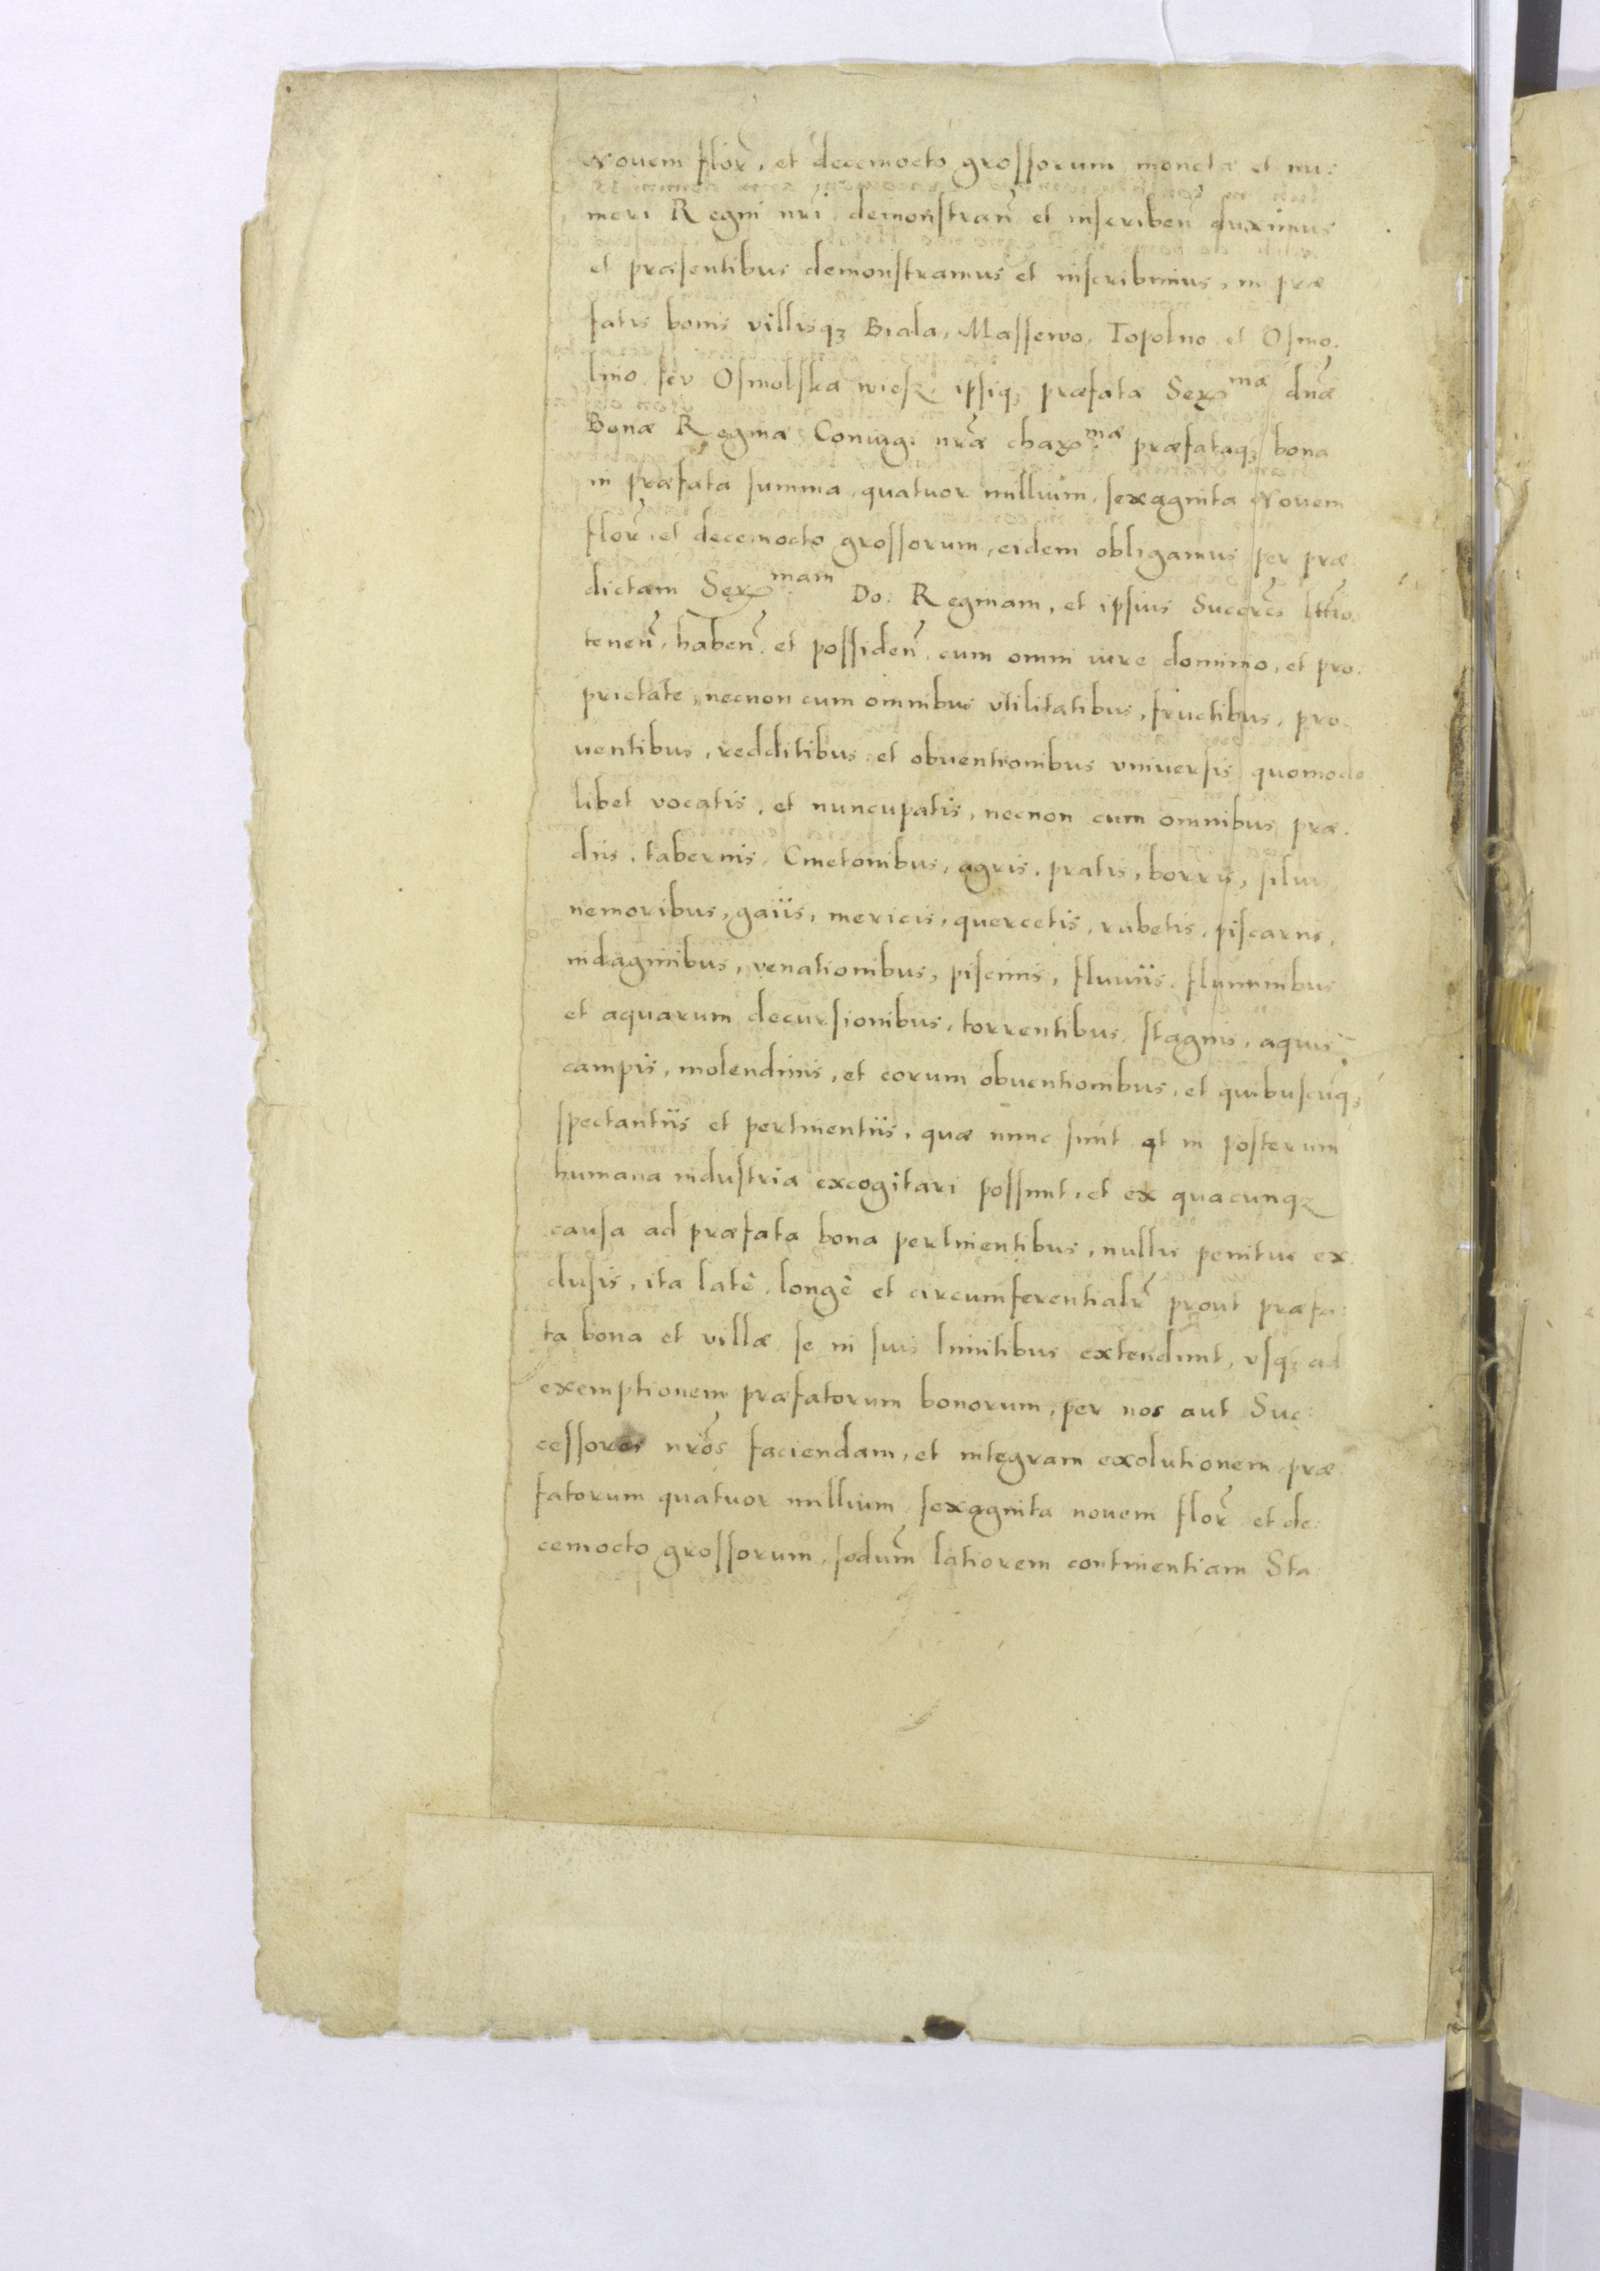 Nouem flor̃, et decemocto grossorum monetæ et nu:
meri Regni nr̃i demonstran̄ et inscriben̄ duximus
et præsentibus demonstramus et inscribimus, in præ
fatis bonis villisq₃ Biala, Massewo, Topolno et Osmo.
lino seu Osmolska wiesz ipsiq₃ præfata Ser^mæ dnæ
Bonæ Reginæ Coniugi nr̃æ char^mæ præfataq₃ bona
in præfata summa, quatuor millium, sexaginta Nouem
flor̃, et decemocto grossorum, eidem obligamus per præ
dictam Ser^mam Do: Reginam, et ipsius Succr̃es lt̃tio.
tenen̄, haben̄ et possiden̄ cum omni iure dominio, et pro.
prietate, necnon cum omnibus vtilitatibus, fructibus, pro
uentibus, redditibus et obuentionibus vniuersis quomodo
libet vocatis, et nuncupatis, necnon cum omnibus præ.
diis, tabernis, Cmetonibus, agris, pratis, borris, siluis
nemoribus, gaiis, mericis, quercetis, rubetis, piscariis,
indaginibus, venationibus, piscinis, fluuiis, fluminibus
et aquarum decursionibus, torrentibus, stagnis, aquis
campis, molendinis, et eorum obuentionibus, et quibuscūq₃
spectantiis et pertinentiis, quæ nunc sunt et in posterum
humana industria excogitari possunt, et ex quacunq₃
causa ad præfata bona pertinentibus, nullis penitus ex
clusis, ita latè, longè et circumferentialr̃ prout præfa:
ta bona et villæ se in suis limitibus extendunt, vsq₃ ad
exemptionem præfatorum bonorum, per nos aut Suc:
cessores nr̃os faciendam, et integram exolutionem præ
fatorum quatuor millium sexaginta nouem flor̃ et de:
cemocto grossorum, secdum̃ latiorem continentiam Sta